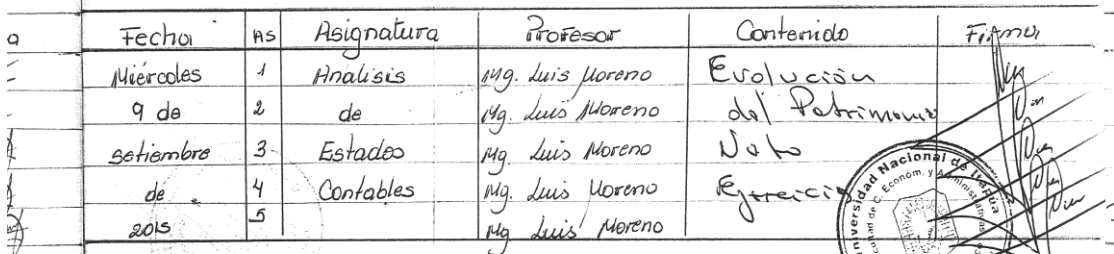 a Fecha HS Asignatura Profesor Contenido Firma
Miércoles 1 Analisis Mg. Luis Moreno Evolución
9 de 2 de Mg. Luis Moreno del Patrimonio
setiembre 3 Estados Mg. Luis Moreno Neto
de 4 Contables Mg. Luis Moreno Ejercicio
2015 5 Mg Luis Moreno
Universidad Nacional de Itapúa
Facultad de C. Económ. y Administrativas